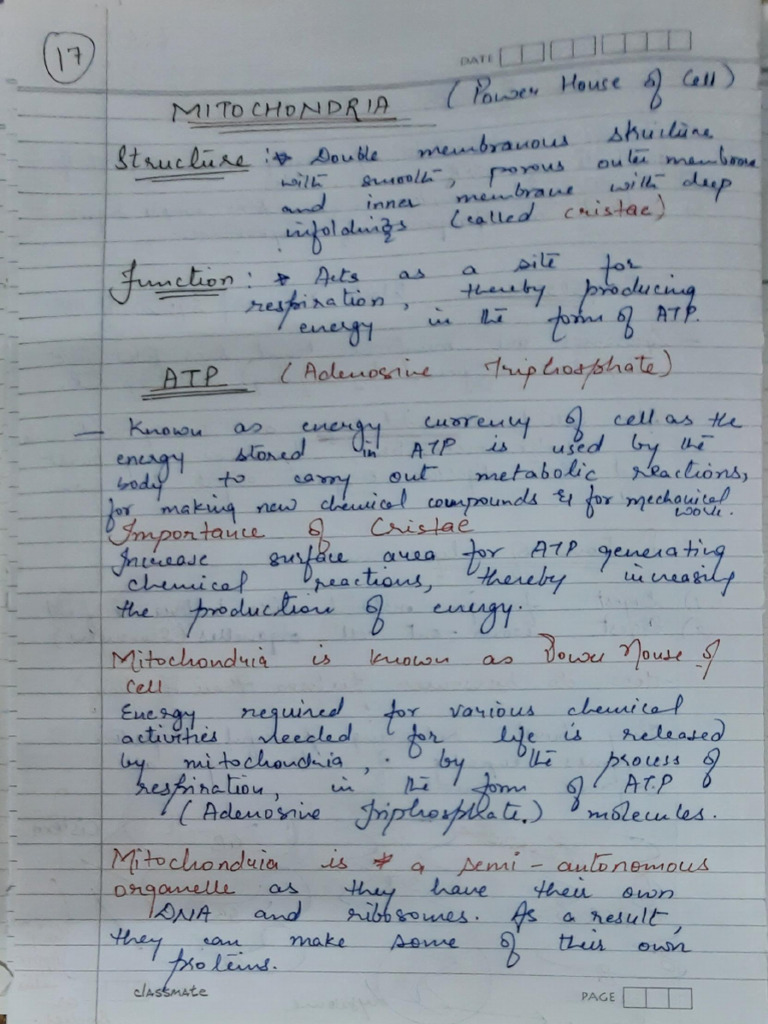 17
DATE
MITOCHONDRIA (Power House of Cell)
Structure :* Double membranous structure
with smooth, porous outer membrane
and inner membrane with deep
infoldings (called cristae)
Function : * Acts as a site for
respiration, thereby producing
energy in the form of ATP.
ATP (Adenosine Triphosphate)
— Known as energy currency of cell as the
energy stored in ATP is used by the
body to carry out metabolic reactions,
for making new chemical compounds & for mechanical
work.
Importance of Cristae
Increase surface area for ATP generating
chemical reactions, thereby increasing
the production of energy.
Mitochondria is known as Power House of
Cell
Energy required for various chemical
activities needed for life is released
by mitochondria, by the process of
respiration, in the form of ATP
(Adenosine Triphosphate.) molecules.
Mitochondria is a semi-autonomous
organelle as they have their own
DNA and ribosomes. As a result,
they can make some of their own
proteins.
classmate
PAGE